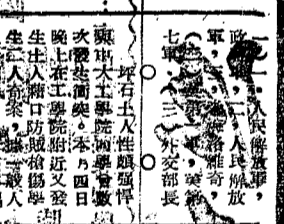 人民解放軍，
政 人民解放
軍， 維奇，
第
七軍 外交部長
坪石土人性頗强悍
與中大工學院同學曾數
次發生衝突。本月四日
晚上在工學院附近又發
生土人藉口防賊槍傷學
生二人奇案，據一般人